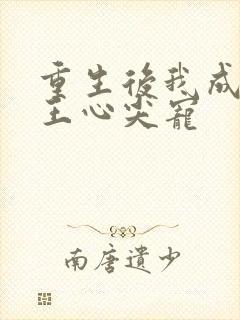 重生後我成
王心尖寵
南唐遺少